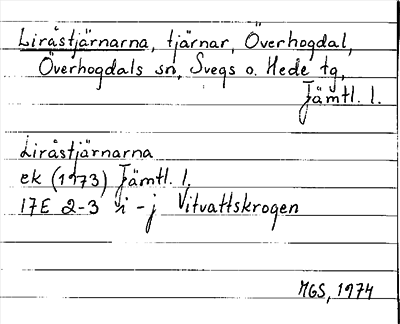 Liråstjärnarna, tjärnar, Överhogdal,
Överhogdals sn, Svegs o. Hede tg,
Jämtl. l.
Liråstjärnarna
ek (1973) Jämtl. l.
17E 2-3 i - j Vitvattskrogen
MGS, 1974